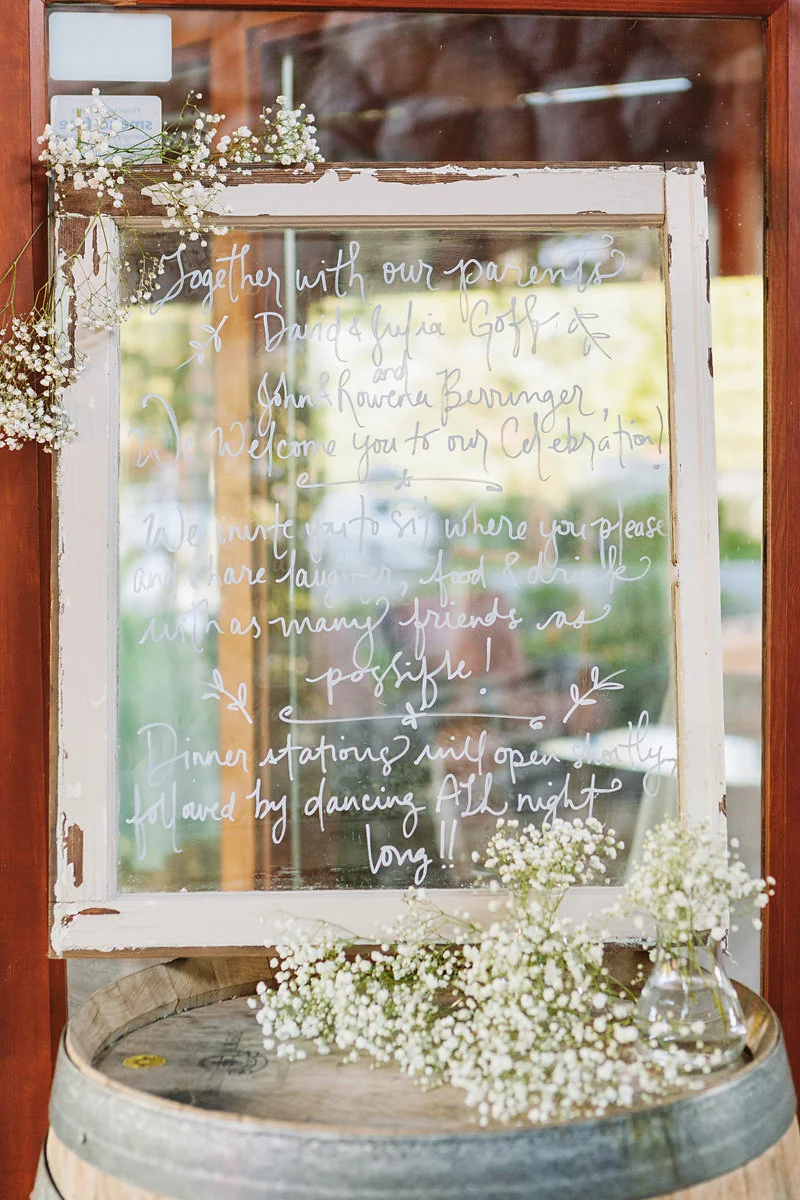 Together with our parents
David & Julia Goff
and
John & Rowena Berringer,
We Welcome you to our Celebration!
We invite you to sit where you please
and share laughter, food & drink
with as many friends as
possible!
Dinner stations will open shortly,
followed by dancing ALL night
long!!